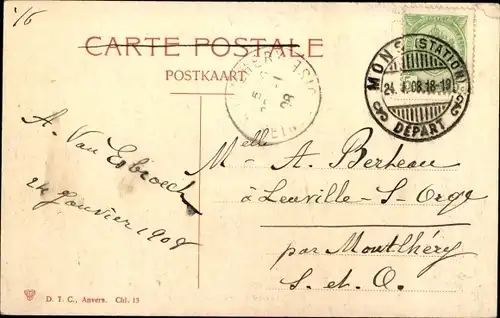 '/6
CARTE POSTALE
POSTKAART
MONS (STATION)
24. 1. 08. 18-19
DÉPART
08
A. Van Esbroeck
24 Janvier 1908
Melle A. Berteau
à Leuville-S-Orge
par Montlhéry
S.-et-O.
D. T. C., Anvers. Chl. 13